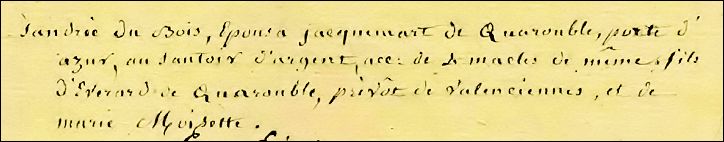 Sandrée du Bois, Epousa jacquemart de Quarouble, porte d'
azur, au Sautoir d'argent, acc: de 4 macles de même, fils
d'Everard de Quarouble, prévôt de Valenciennes, et de
marie Moisette.